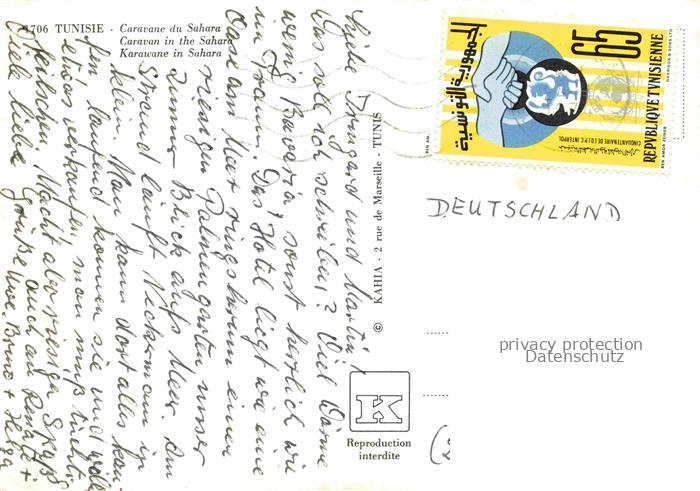 1706 TUNISIE - Caravane du Sahara
Caravan in the Sahara
Karawane in Sahara
Liebe Irmgard und Martin!
Was soll ich schreiben? Viel Wärme
wenn Bavaria sonst herrlich wie
im Traum. Das Hotel liegt wie eine
Oase am Meer ringsherum einen
riesigen Palmengarten unser
Zimmer Blick aufs Meer. Am
Strand läuft Neckermann in
Man kann dort alles kau-
fen laufend kommen sie und wollen
etwas verkaufen man muß tüchtig
Macht aber riesigen Spaß
Viele liebe Grüße auch an Renate +
Uwe. Bruno + Helga
© KAHIA - 2 rue de Marseille - TUNIS
K
Reproduction
interdite
الجمهورية التونسية
65
REPUBLIQUE TUNISIENNE
CINQUANTENAIRE DE L'O.I.P.C. INTERPOL
DEUTSCHLAND
privacy protection
Datenschutz